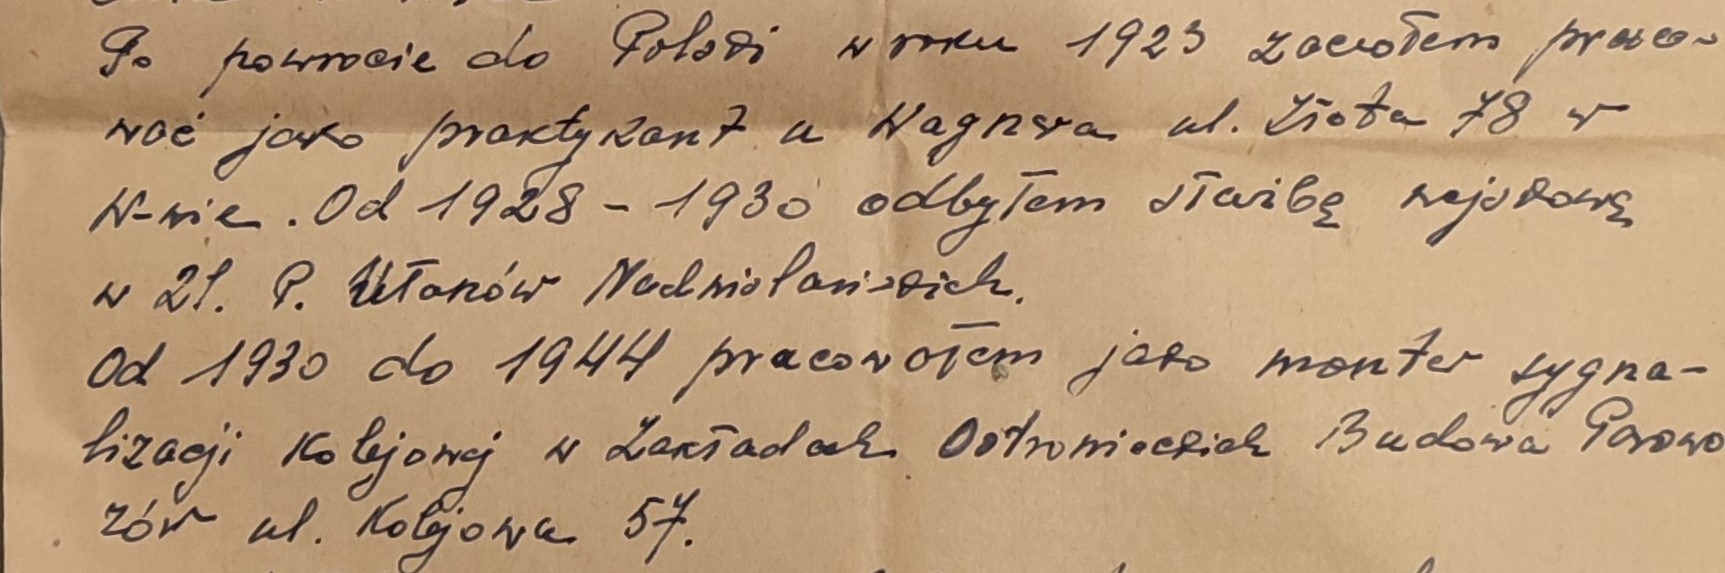 Po powrocie do Polski w roku 1923 zacząłem praco-
wać jako praktykant u Wagnera ul. Złota 78 w
W-wie. Od 1928 - 1930 odbyłem służbę wojskową
w 21. P. Ułanów Nadwiślańskich.
Od 1930 do 1944 pracowałem jako monter sygna-
lizacji Kolejowej w Zakładach Ostrowieckich Budowa Parowo
zów ul. Kolejowa 57.